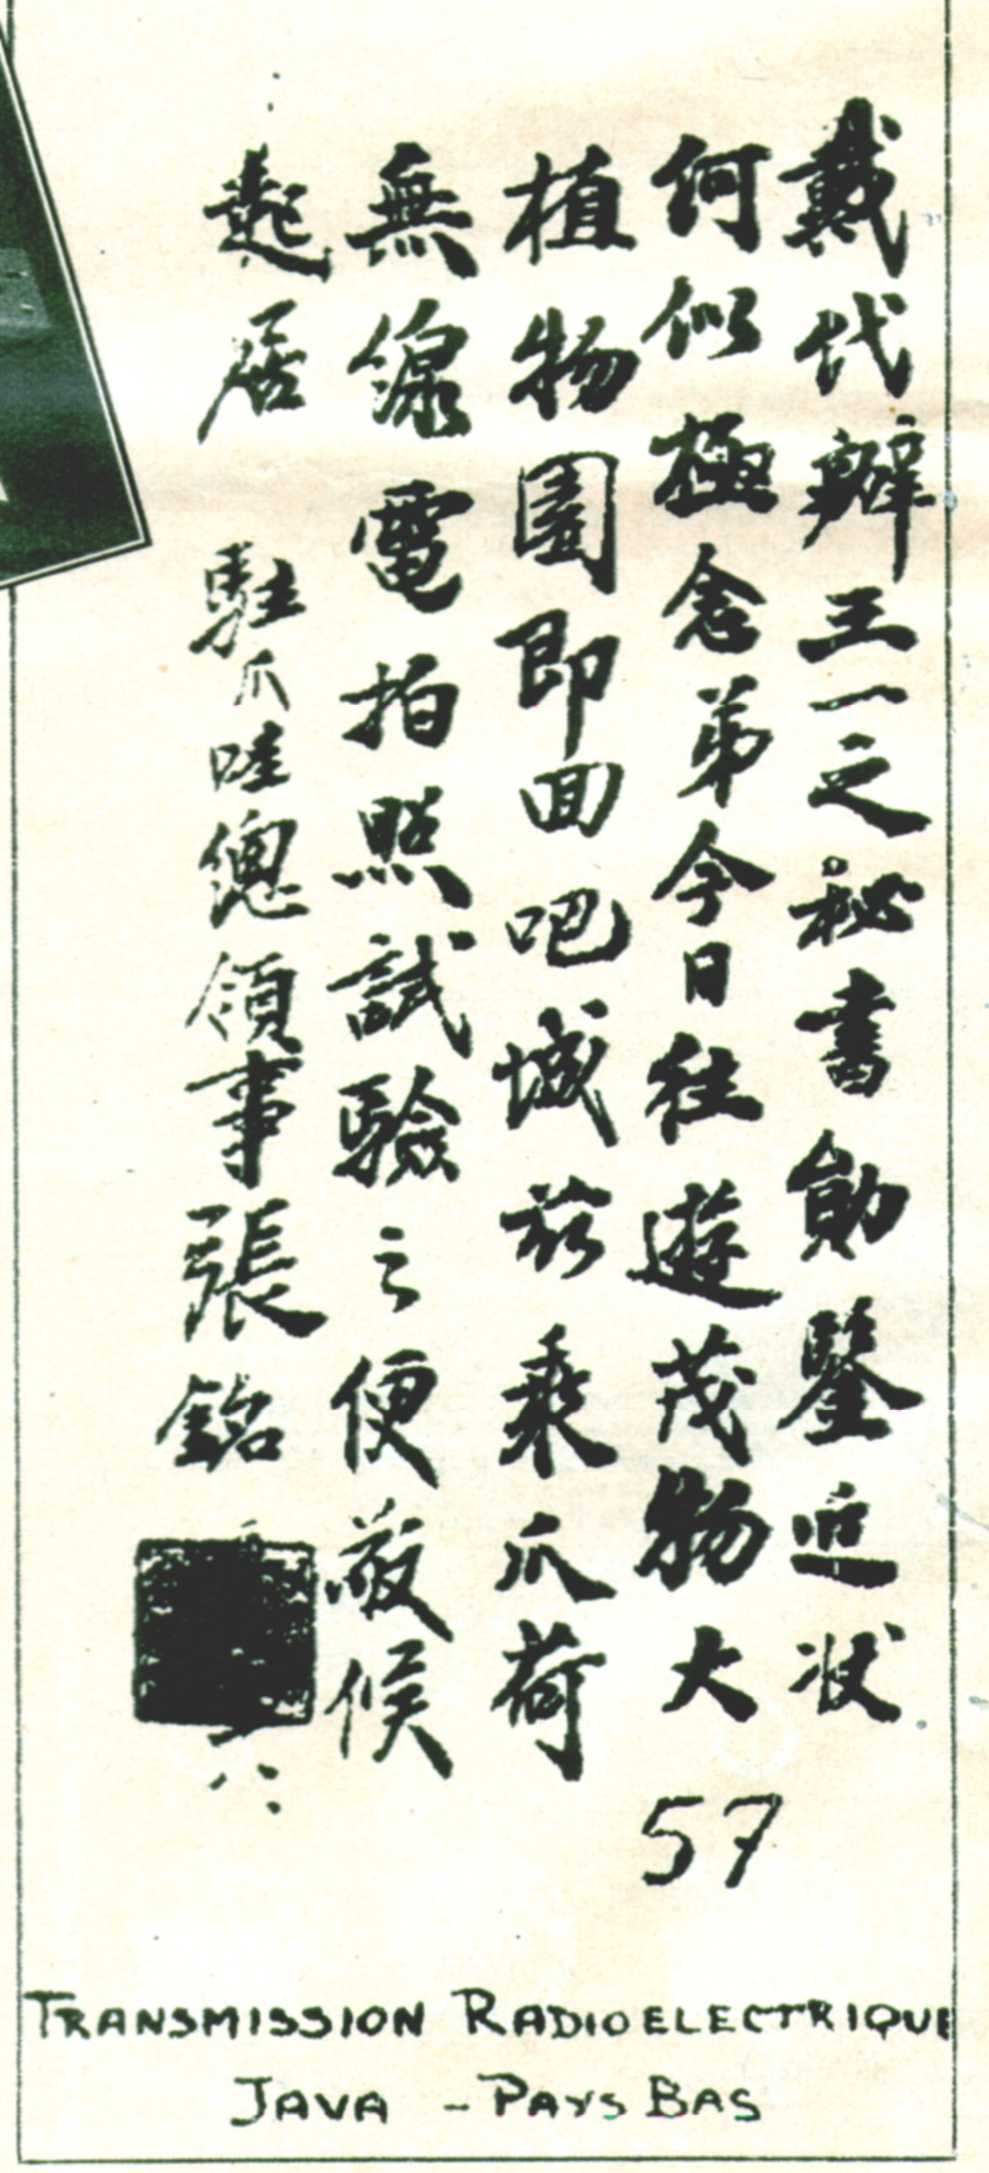 戴代辦王一之秘書勛鑒近狀
何似極念弟今日往遊茂物大
植物園即回吧城茲乘爪荷
無線電拍照試驗之便敬候
起居 駐爪哇總領事張銘
八
57
TRANSMISSION RADIOELECTRIQUE
JAVA - PAYS BAS